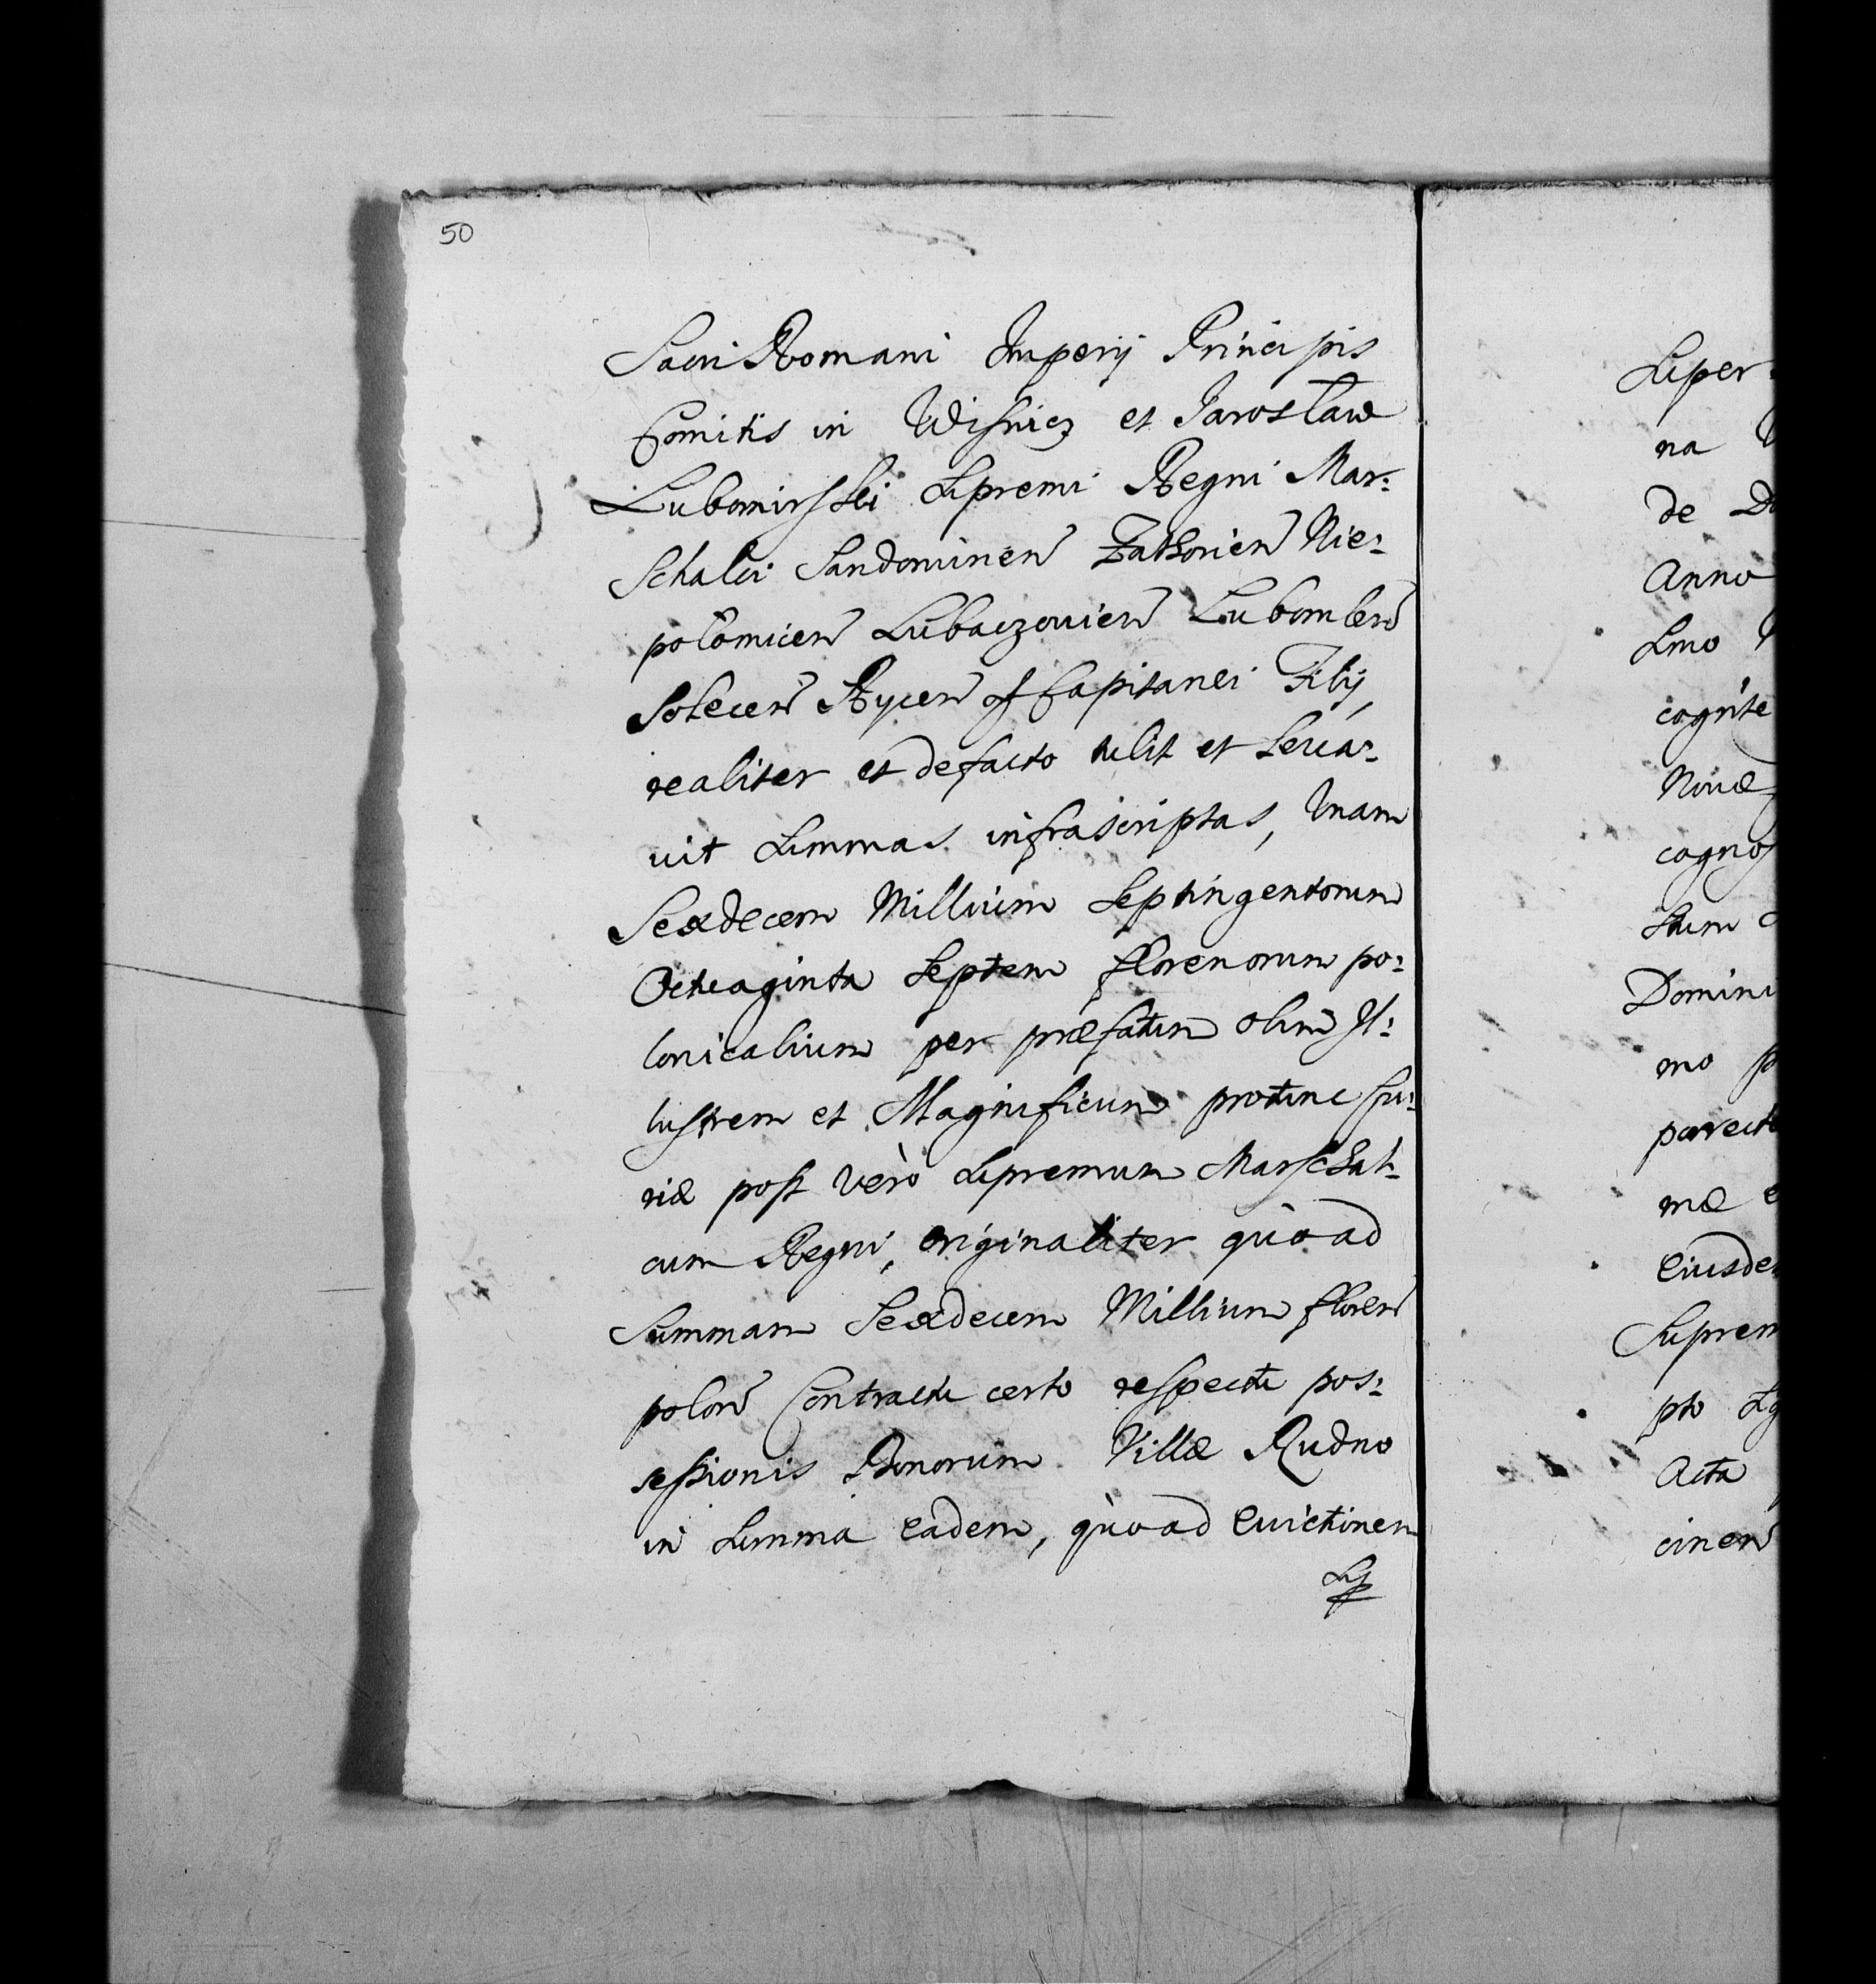 50
Sacri Romani Imperij Principis
Comitis in Wisnicz et Jarosław
Lubomirski Supremi Regni Mar:
schalci Sandomirien Zathorien Nie:
połomicen Lubaczovien Lubomlen
Solecen Rycen et Capitanei Filij,
realiter et defacto tulit et Leva:
vit Summas infrascriptas, Unam
Sexdecem Millium Septingentorum
Octuaginta Septem florenorum po:
lonicalium per præfatum olim Il:
lustrem et Magnificum protunc Cu:
riæ post verò Supremum Marschal:
cum Regni, originaliter quòad
Summam Sexdecem Millium floren
polon Contractu certo respectu pos:
sessionis Bonorum Villæ Rudno
in Summa eadem, quòad Evictionem
Super:
na
de
Anno
Smo
cognite
Novæ
cognos
Stum
Domini
mo
parecto
mæ
Eiusdem
Suprem
pto
Acta
cinen